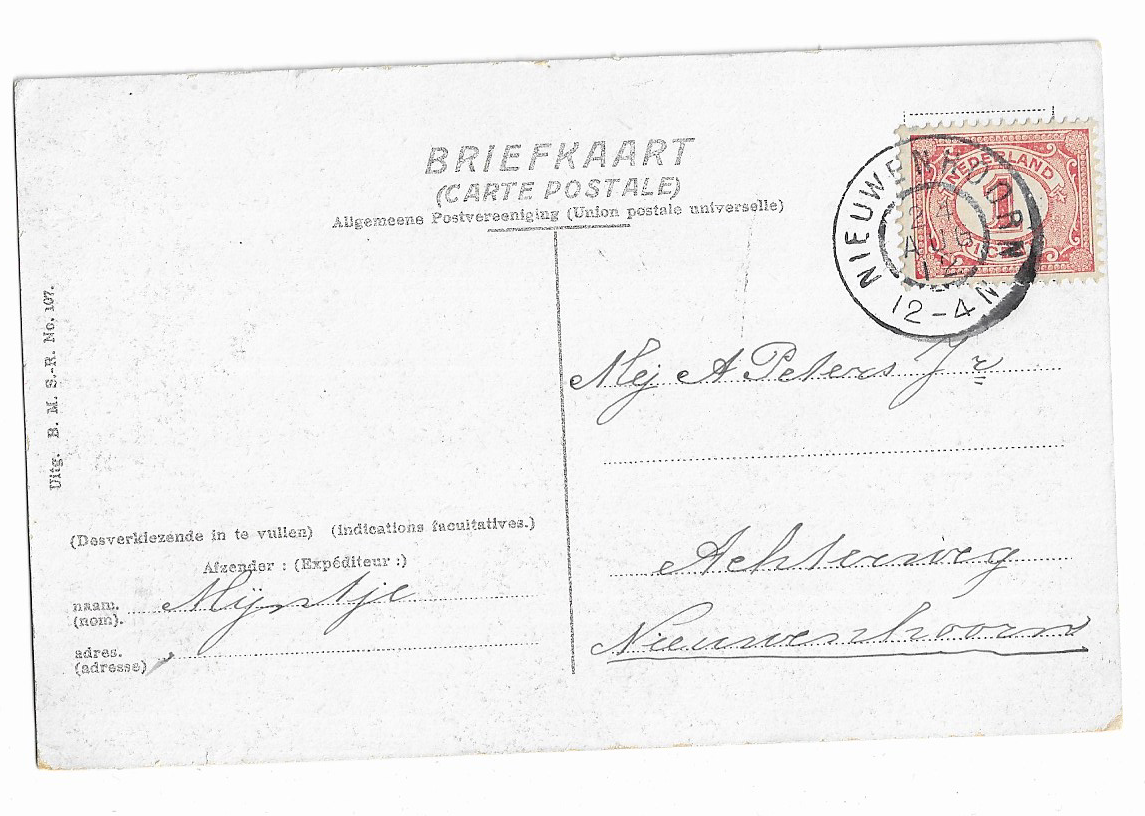 BRIEFKAART
(CARTE POSTALE)
Allgemeene Postvereeniging (Union postale universelle)
NEDERLAND
1
CENT
NIEUWENHOORN
24
AUG
12
12-4N
Uitg. B. M. S.-R. No. 107.
Mej A Peters Jr
Achterweg
Nieuwenhoorn
(Desverkiezende in te vullen) (indications facultatives.)
Afzender : (Expéditeur :)
naam. Mijntje
(nom).
adres.
(adresse)